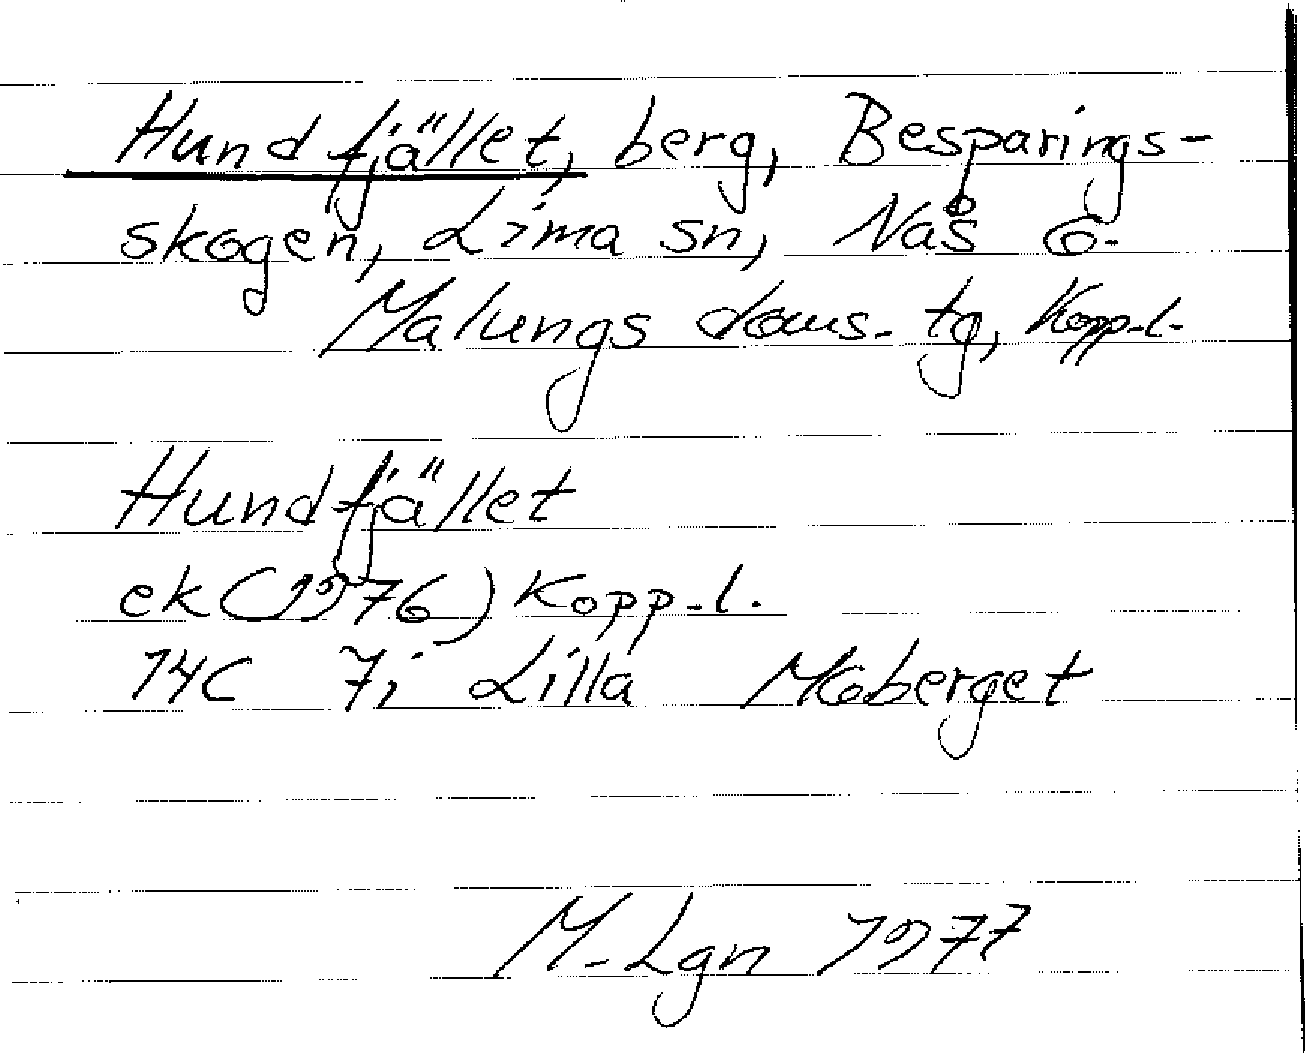 Hundfjället, berg, Besparings-
skogen, Lima sn, Nås o.
Malungs doms. tg, Kopp.l.
Hundfjället
ek (1976) Kopp.l.
14C 7i Lilla Moberget
M. Lgn 1977